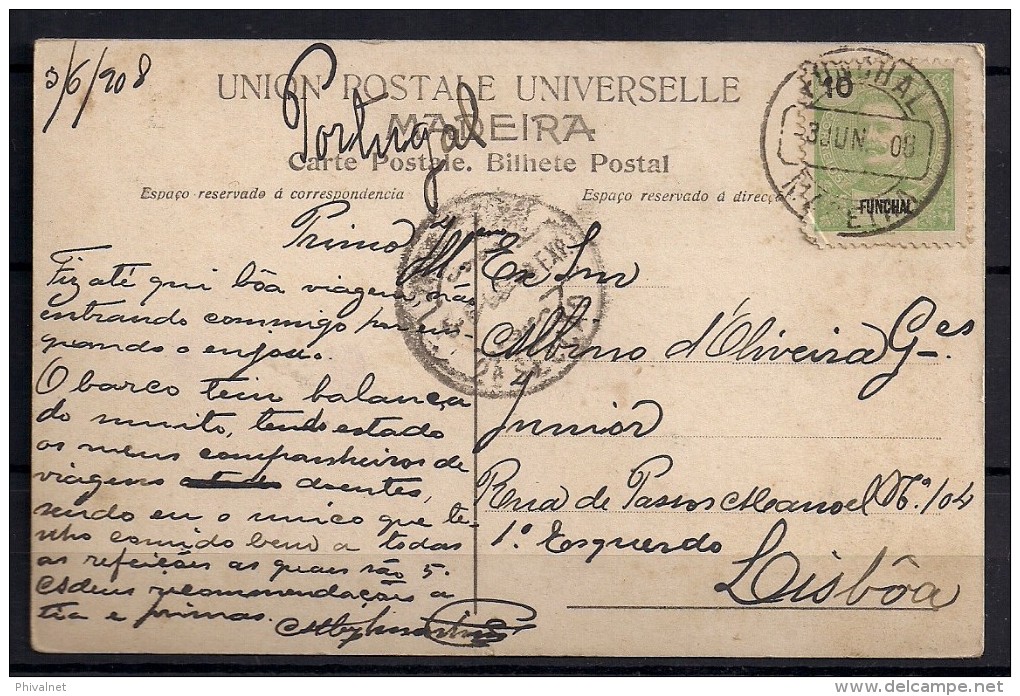 3/6/908
UNION POSTALE UNIVERSELLE
Portugal
MADEIRA
Carte Postale. Bilhete Postal
Espaço reservado á correspondencia
Espaço reservado á direcção
10
FUNCHAL
FUNCHAL
3 JUN 08
Primo
Fiz até qui bôa viagem, não
entrando commigo por em
quando o enjôo.
O barco tem balança
do muito, tendo estado
os meus companheiros de
viagem doentes,
sendo eu o unico que te-
nho comido bem a todas
as refeições as quaes são 5.
Adeus recommendações a
tia e primas.
Illmo Ex Snr
Albino d'Oliveira Ges
Junior
Rua de Passos Manoel No 104
1º Esquerdo
Lisbôa
Phivalnet
delcampe.net